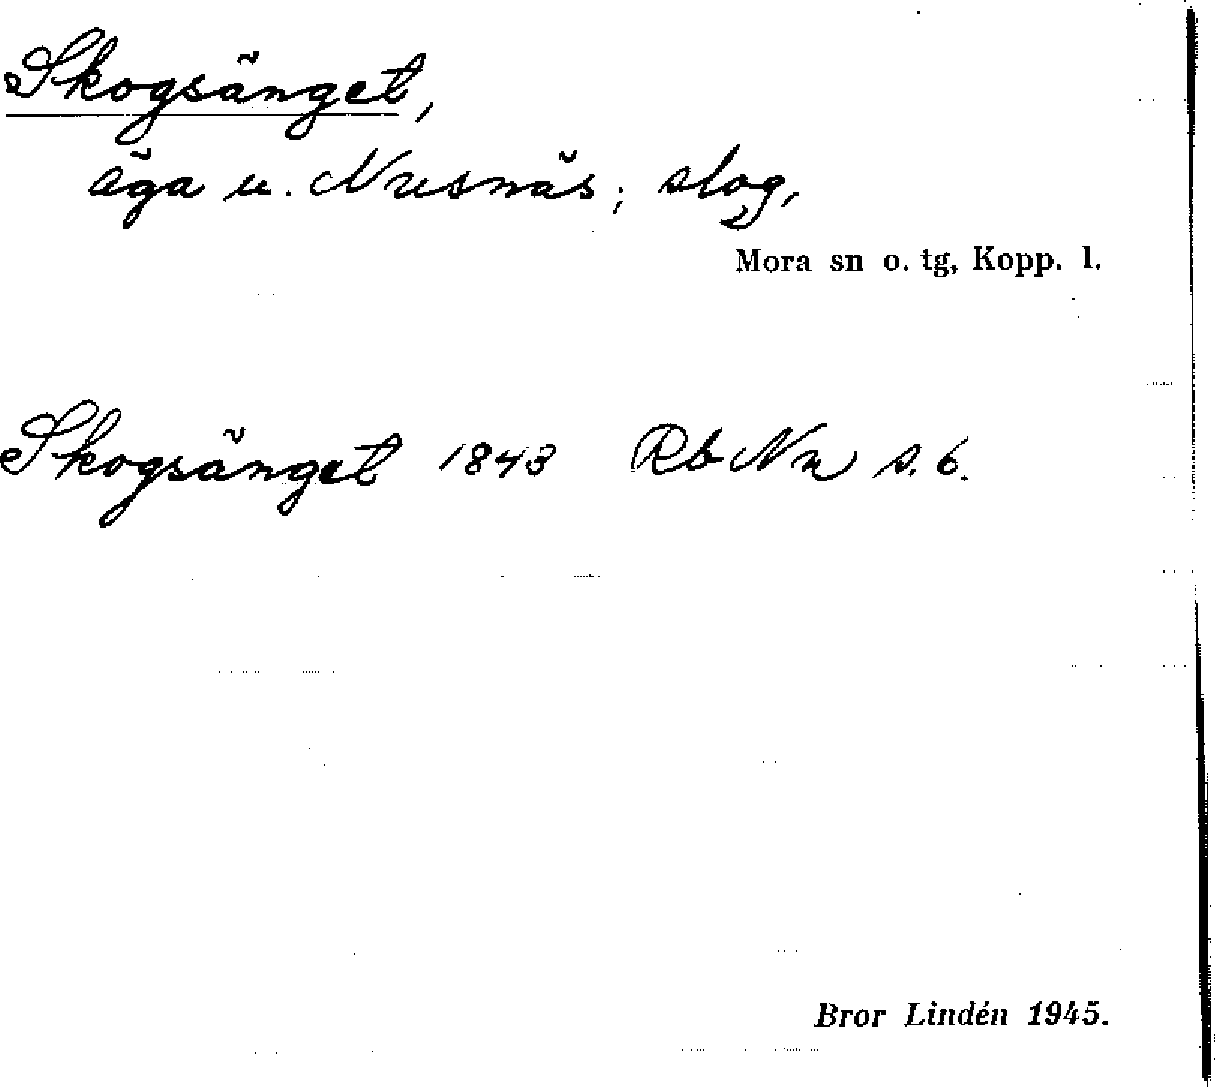 Skogsänget,
äga u. Nusnäs; slog,
Mora sn o. tg, Kopp. l.
Skogsänget 1843 Rb Nu s. 6.
Bror Lindén 1945.